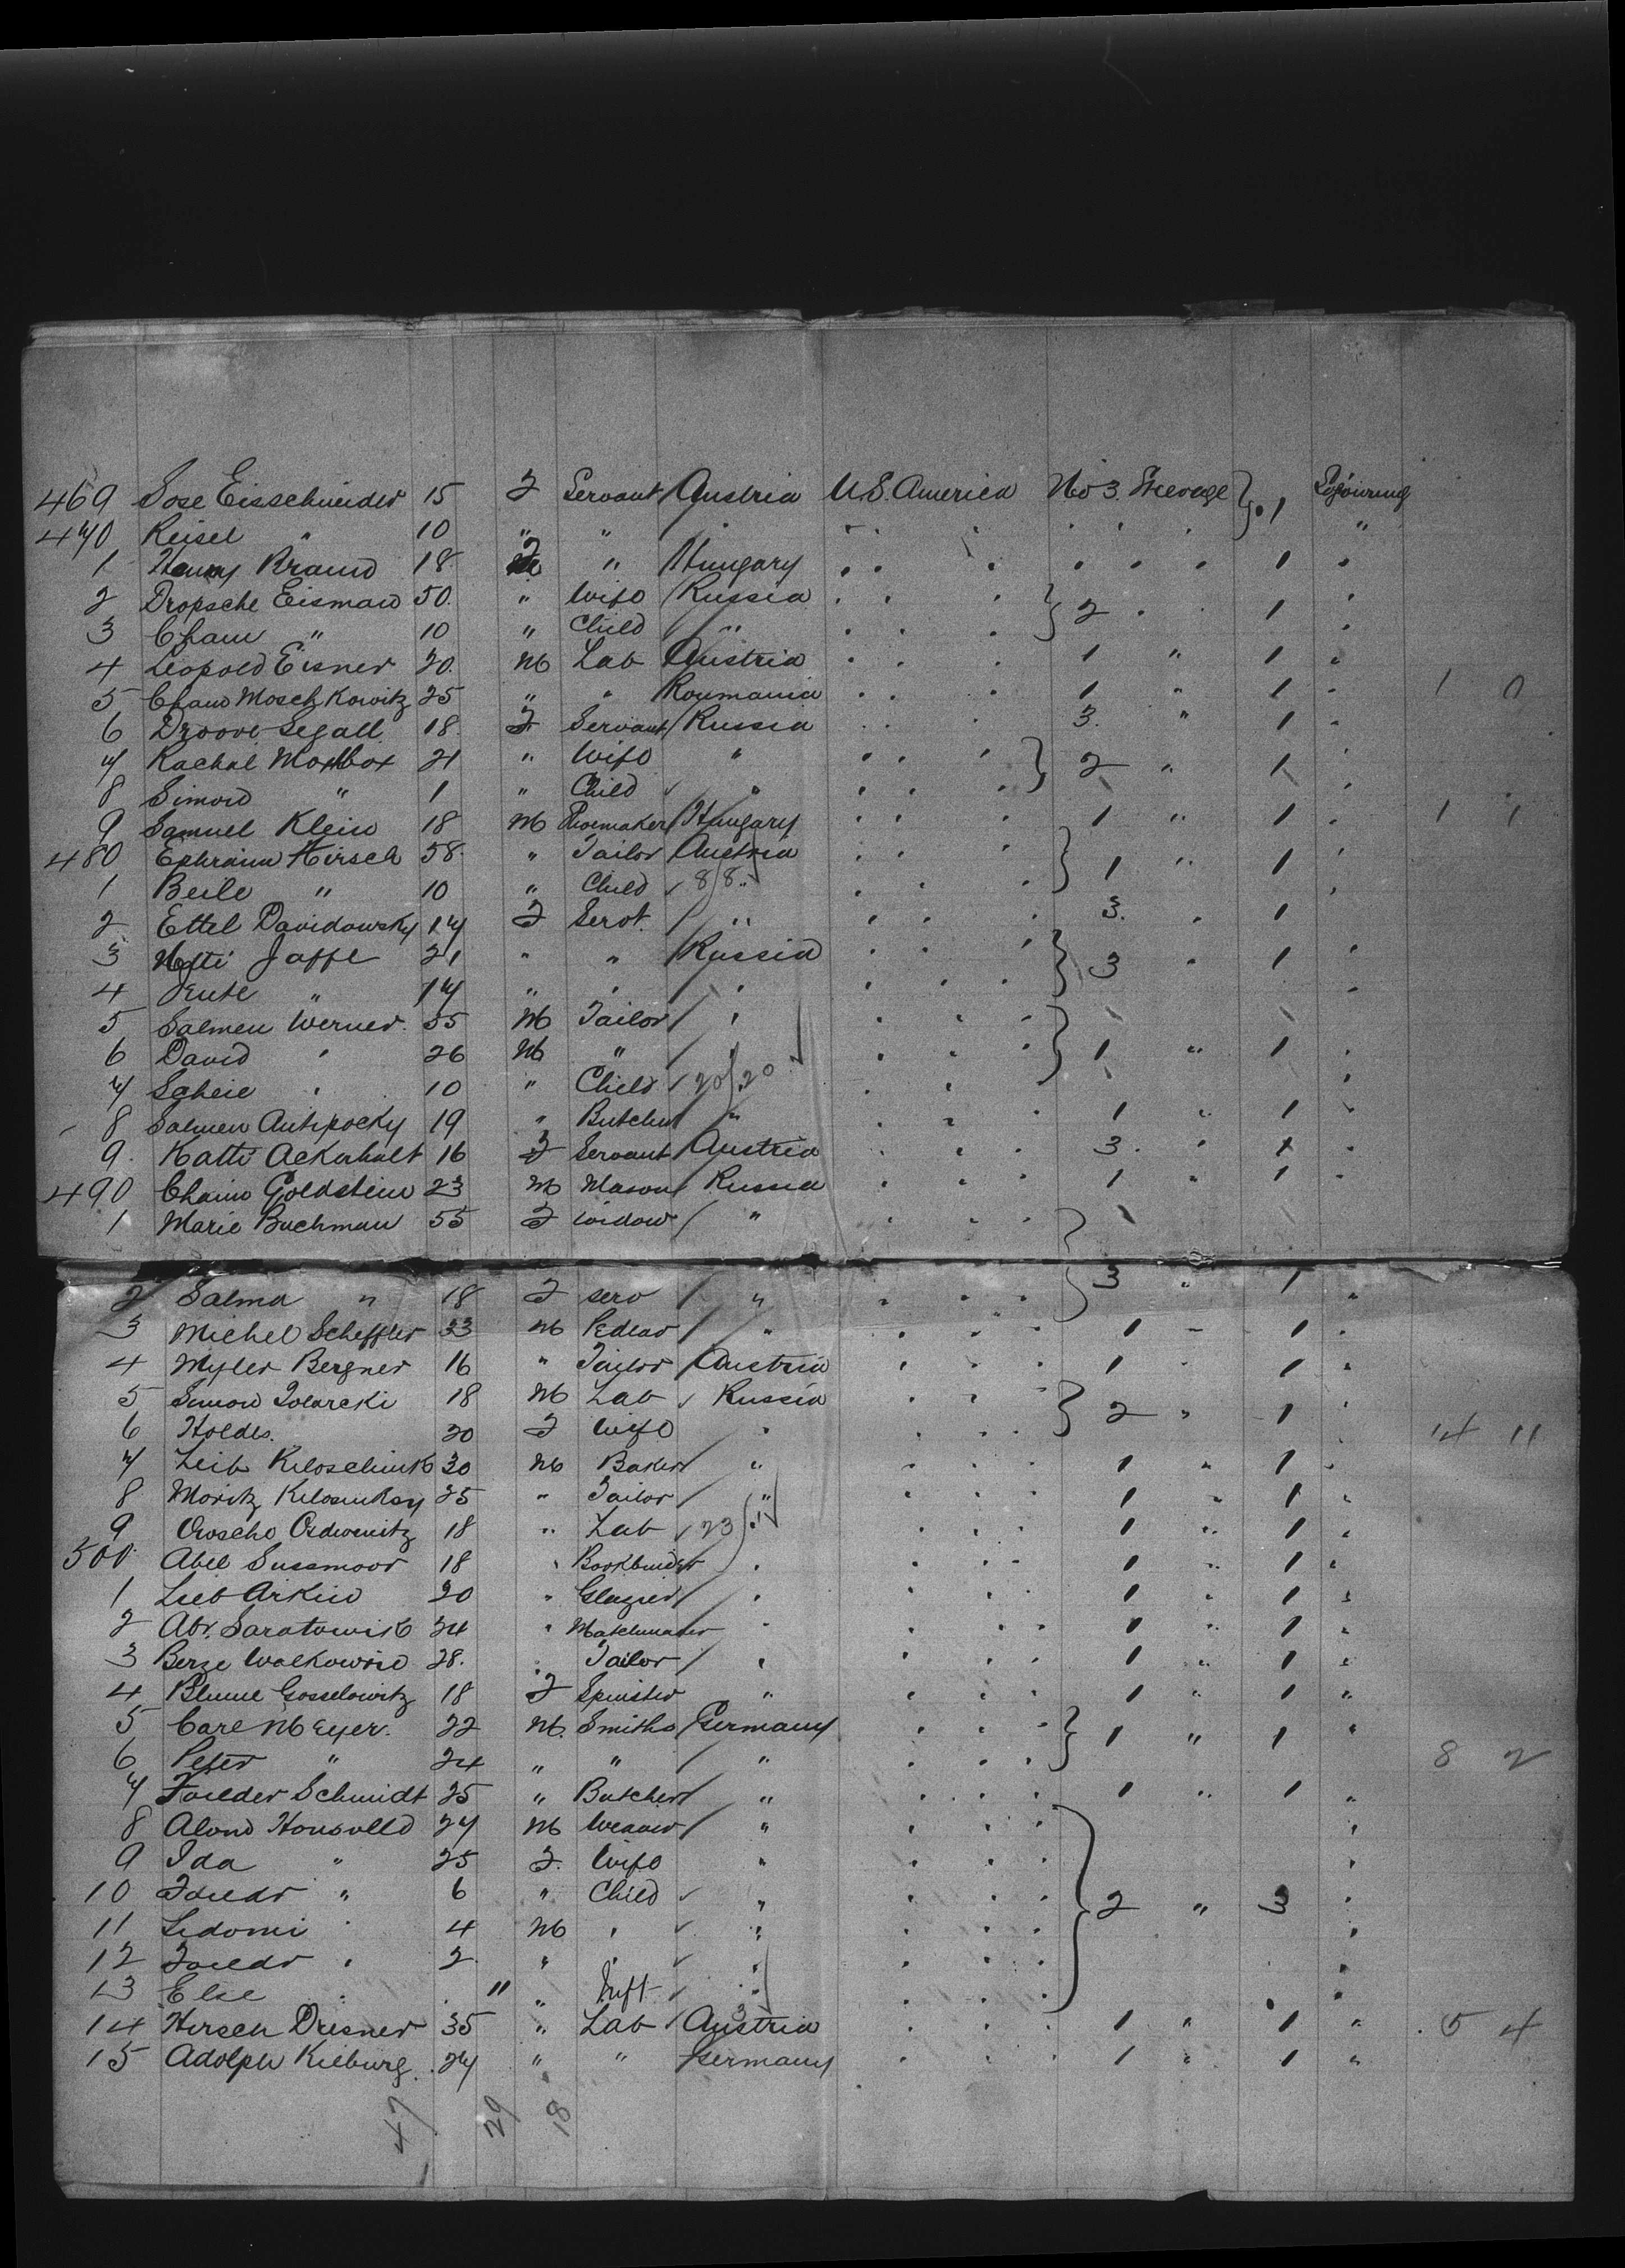 469 Sose Eisschneider 15 F Servant Austria U.S. America No 3. Steerage 1 Sojouring
470 Reisel " 10 " " " "
1 Henry Braun 18 F " Hungary 1
2 Dropsche Eisman 50. " Wife Russia 2 1
3 Cham " 10 " Child "
4 Leopold Eisner 20. M Lab Austria 1 " 1
5 Cham Moschkowitz 25 " " Roumania 1 " 1 1 0
6 Droove Segall 18. F Servant Russia 3. " 1
7 Rachel 21 " Wife " 2 " 1
8 Simon " 1 " Child "
9 Samuel Klein 18 M Shoemaker Hungary 1 " 1 1 1
480 Ephraim Hirsch 58. " Tailor Austria 1 " 1
1 Beile " 10 " Child 8/8 "
2 Ettel Davidowsky 17 F Servt. " 3. " 1
3 Jaffe 21 " " Russia 3 " 1
4 Jente " 17 " " "
5 Salmen Werner. 55 M Tailor "
6 David " 26 M " " 1 " 1
7 Scheie " 10 " Child 20/20
8 Salmen Antipocky 19 " Butcher " 1 " 1
9. Katti Ackerhalt 16 F Servant Austria 3. " 1
490 Chaim Goldstein 23 M Mason Russia 1 " 1
1 Marie Buchman 55 F Widow "
2 Salma " 18 F serv " 3 " 1
3 Michel Scheffler 33 M Pedlar " 1 " 1
4 Myler Bergner 16 " Tailor Austria 1 " 1
5 Simon Tolarcki 18 M Lab Russia 2 " 1
6 Holdes. 20 F Wife " 14 11
7 Leib 30 M Baker " 1 " 1
8 Moritz 25 " Tailor " 1 " 1
9 18 " Lab 23 " 1 " 1
500 Abel Sussmoor 18 " Bookbinder " 1 " 1
1 Lieb Arkin 20 " Glazier " 1 " 1
2 Abr. 24 " Watchmaker " 1 " 1
3 Berze 28. " Tailor " 1 " 1
4 Blume Gosselowitz 18 F Spinster " 1 " 1
5 Carl Meyer. 22 M. Smiths Germany 1 " 1
6 Peter " 24 " " " 8 2
7 Schmidt 25 " Butcher " 1 " 1
8 27 M Weaver "
9 Ida " 25 F. Wife "
10 " 6 " Child " 2 " 3
11 " 4 M " "
12 " 2 " " "
13 Else " 11 " Inft "
14 Hirsch Dresner 35 " Lab Austria 1 " 1 5 4
15 Adolph Kieburg. 27 " " Germany 1 " 1
47 29 18